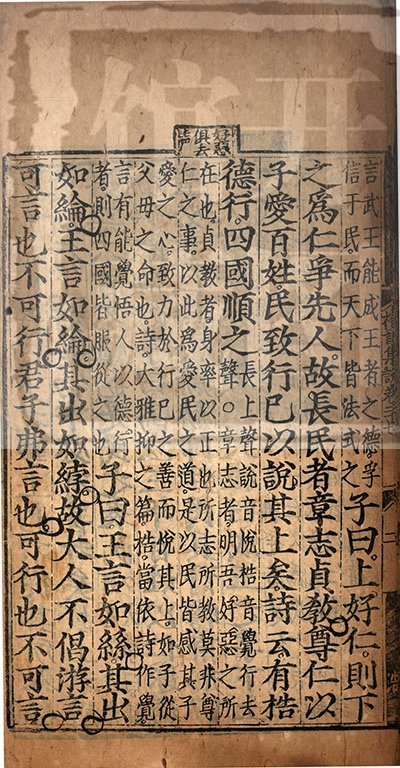 言武王能成王者之德孚
信于民而天下皆法式之
子曰。上好仁。則下
之爲仁爭先人。故長民者章志貞教尊仁以
子愛百姓民致行已以說其上矣詩云有梏
德行。四國順之
長上聲說音悅梏音覺行去
聲。章志者明吾好惡之所
在也。貞教者身率以正也。所志所教莫非尊
仁之事。以此爲愛民之道。是以民皆感其子
愛之心。致力於行已之善而悅其上。如子從
父母之命也。詩大雅抑之篇。梏。當依詩作覺
言有能覺悟人以德行
者。則四國皆服從之也
子曰。王言如絲其出
如綸王言如綸其出如綍故大人不倡游言
可言也不可行。君子弗言也可行也不可言
好惡
俱去